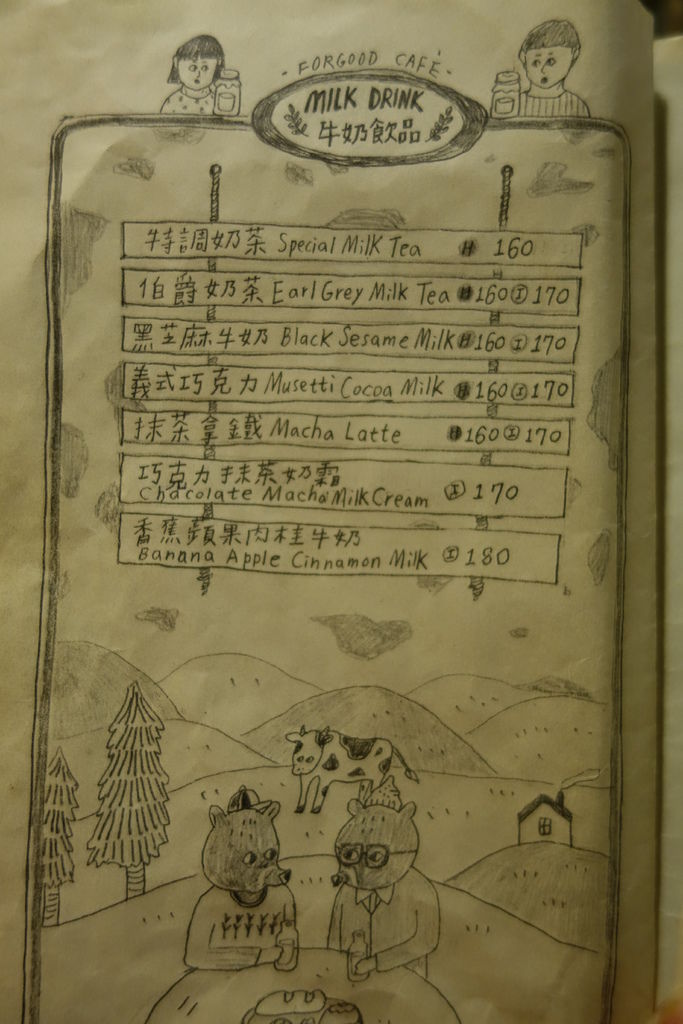 FORGOOD CAFE
MILK DRINK
牛奶飲品
特調奶茶 Special Milk Tea H 160
伯爵奶茶 Earl Grey Milk Tea H 160 I 170
黑芝麻牛奶 Black Sesame Milk H 160 I 170
義式巧克力 Musetti Cocoa Milk H 160 I 170
抹茶拿鐵 Macha Latte H 160 I 170
巧克力抹茶奶霜
Chacolate Macha Milk Cream I 170
香蕉蘋果肉桂牛奶
Banana Apple Cinnamon Milk I 180